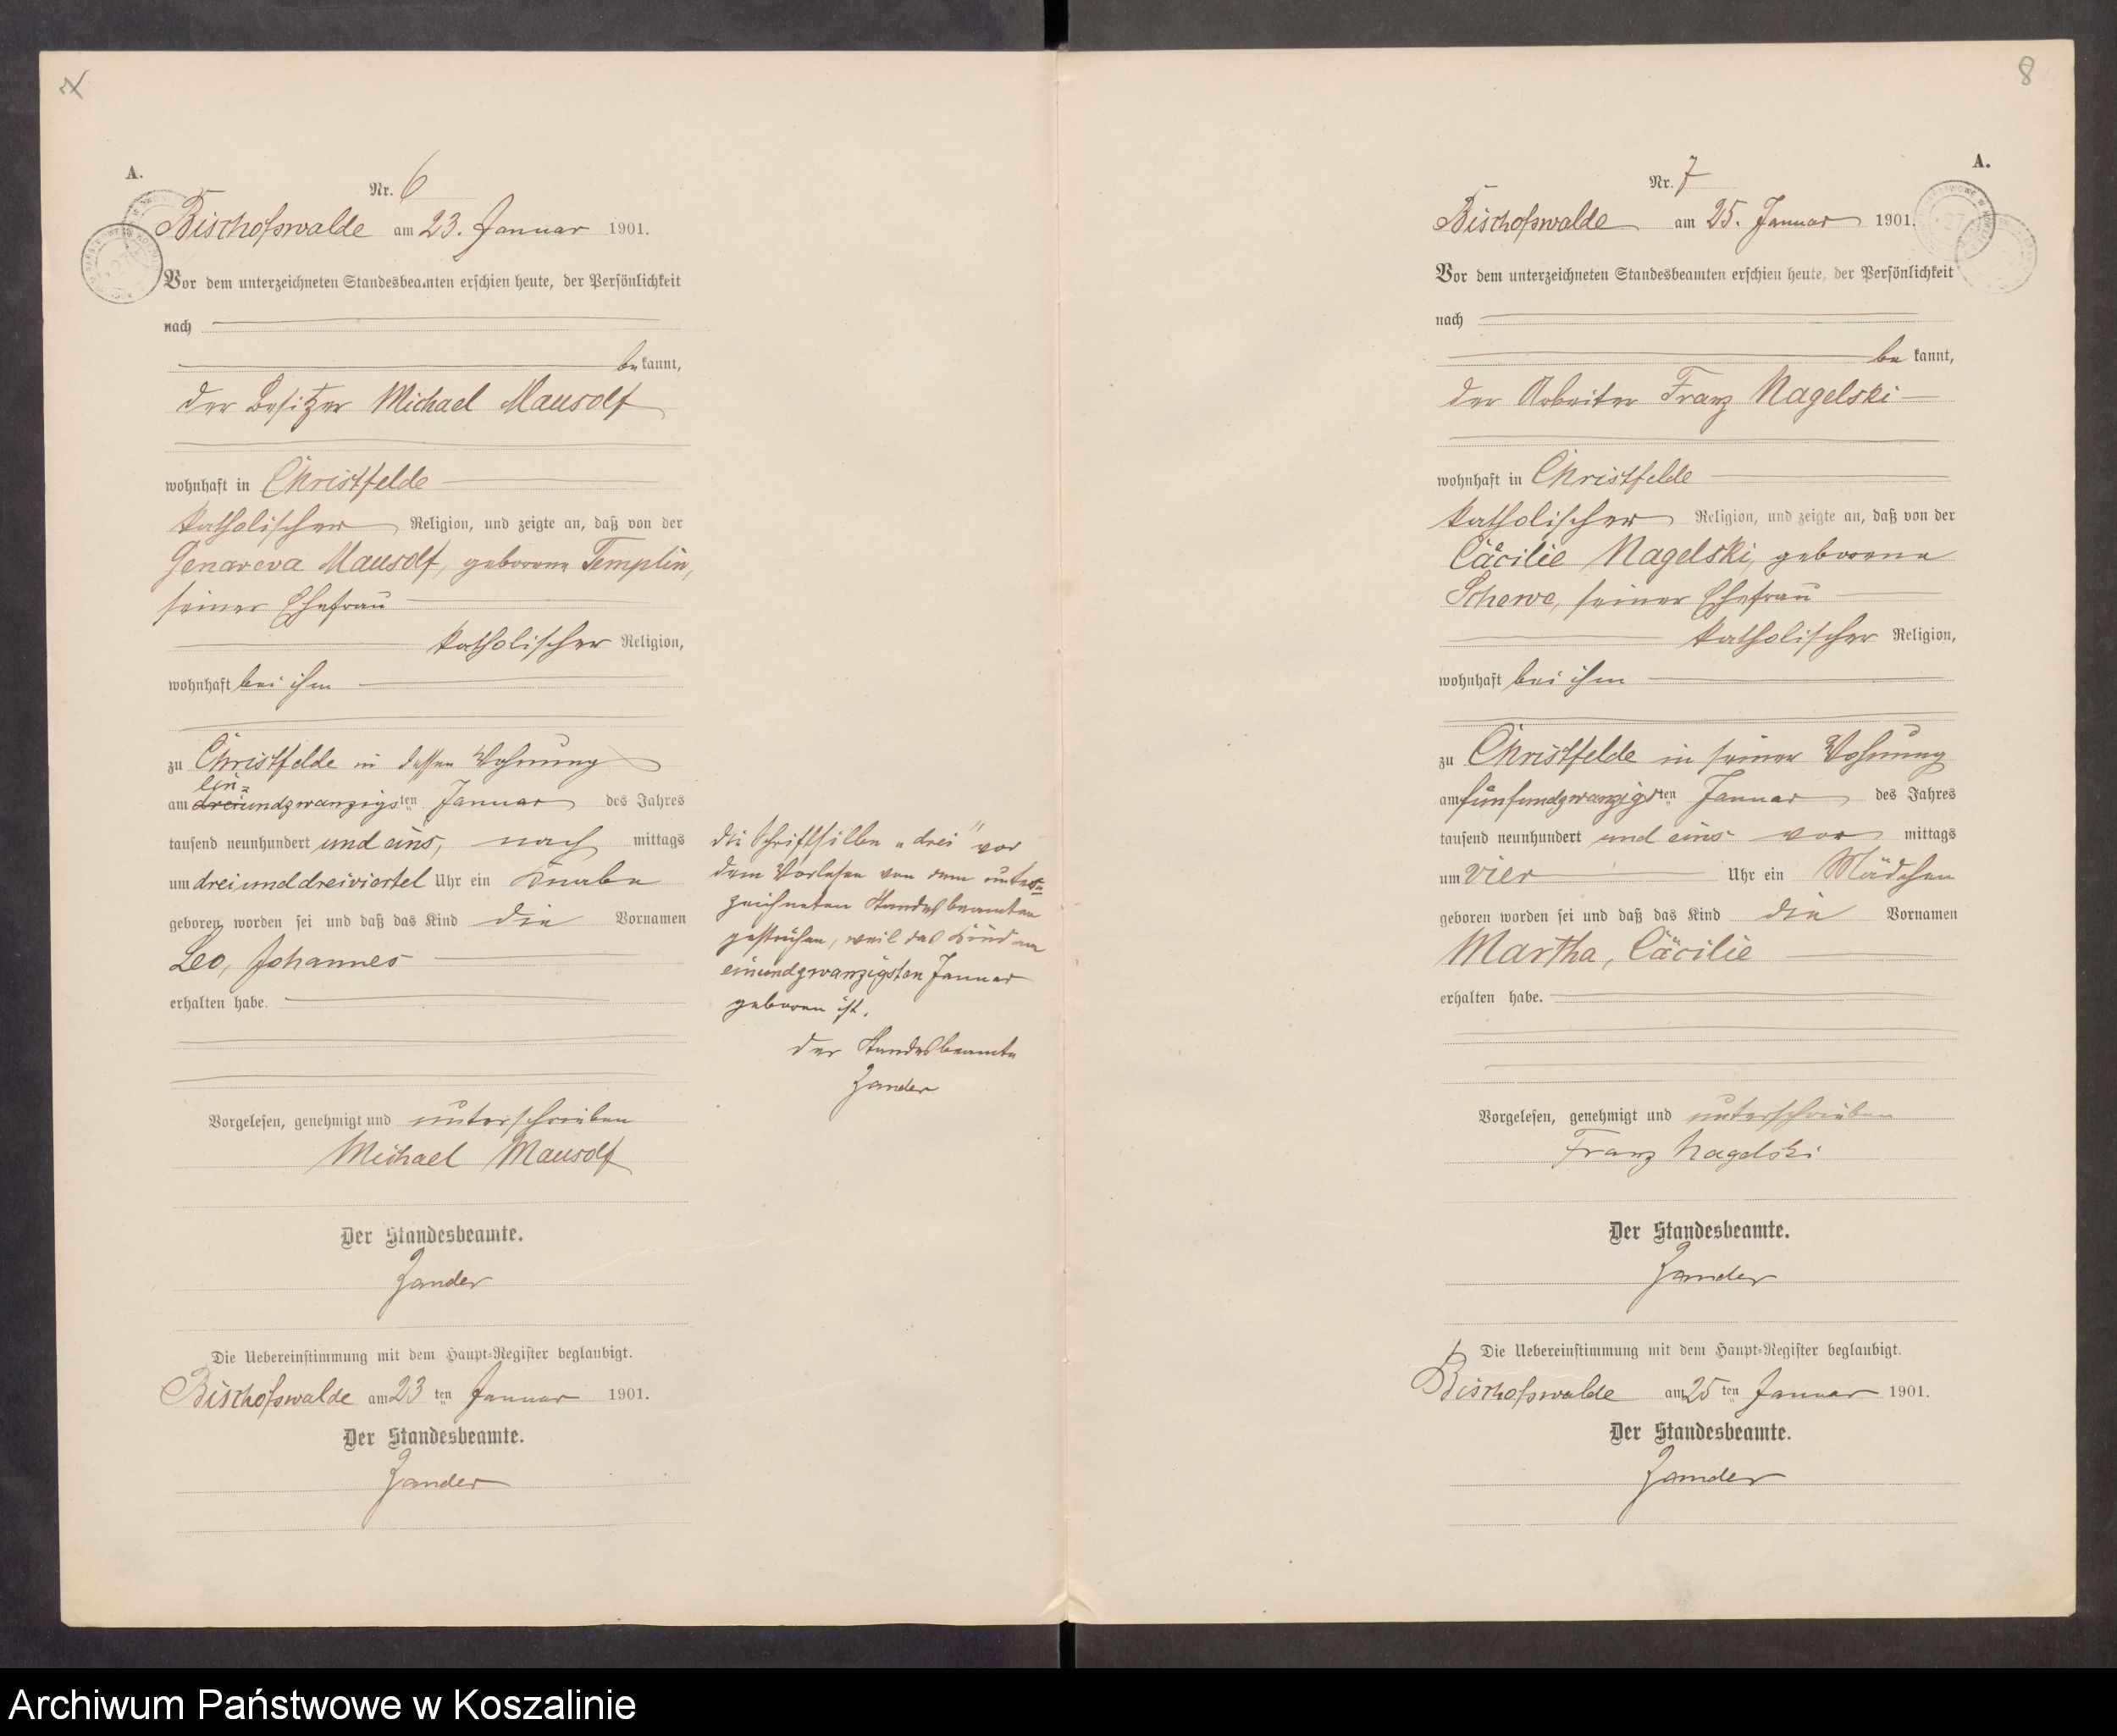 A.
Nr. 6
Bischofswalde am 23. Januar 1901.
Vor dem unterzeichneten Standesbeamten erschien heute, der Persönlichkeit
nach
bekannt,
der Besitzer Michael Mausolf
wohnhaft in Christfelde
katholischer Religion, und zeigte an, daß von der
Genoveva Mausolf, geborene Templin,
seiner Ehefrau
katholischer Religion,
wohnhaft bei ihm
zu Christfelde in dessen Wohnung
ein=
am dreiundzwanzigsten Januar des Jahres
tausend neunhundert und eins, nach mittags
um drei und dreiviertel Uhr ein Knabe
geboren worden sei und daß das Kind die Vornamen
Leo, Johannes
erhalten habe.
Vorgelesen, genehmigt und unterschrieben
Michael Mausolf
Der Standesbeamte.
Zander
Die Uebereinstimmung mit dem Haupt-Register beglaubigt.
Bischofswalde am 23 ten Januar 1901.
Der Standesbeamte.
Zander
die Schriftsilben „drei" vor
dem Vorlesen von dem unter=
zeichneten Standesbeamten
gestrichen, weil das Kind am
einundzwanzigsten Januar
geboren ist.
der Standesbeamte
Zander
8
A.
Nr. 7
Bischofswalde am 25. Januar 1901.
Vor dem unterzeichneten Standesbeamten erschien heute, der Persönlichkeit
nach
be kannt,
der Arbeiter Franz Nagelski
wohnhaft in Christfelde
katholischer Religion, und zeigte an, daß von der
Cäcilie Nagelski, geborene
Schewe, seiner Ehefrau
katholischer Religion,
wohnhaft bei ihm
zu Christfelde in seiner Wohnung
am fünfundzwanzigsten Januar des Jahres
tausend neunhundert und eins vor mittags
um vier Uhr ein Mädchen
geboren worden sei und daß das Kind die Vornamen
Martha, Cäcilie
erhalten habe.
Vorgelesen, genehmigt und unterschrieben
Franz Nagelski
Der Standesbeamte.
Zander
Die Uebereinstimmung mit dem Haupt-Register beglaubigt.
Bischofswalde am 25 ten Januar 1901.
Der Standesbeamte.
Zander
Archiwum Państwowe w Koszalinie